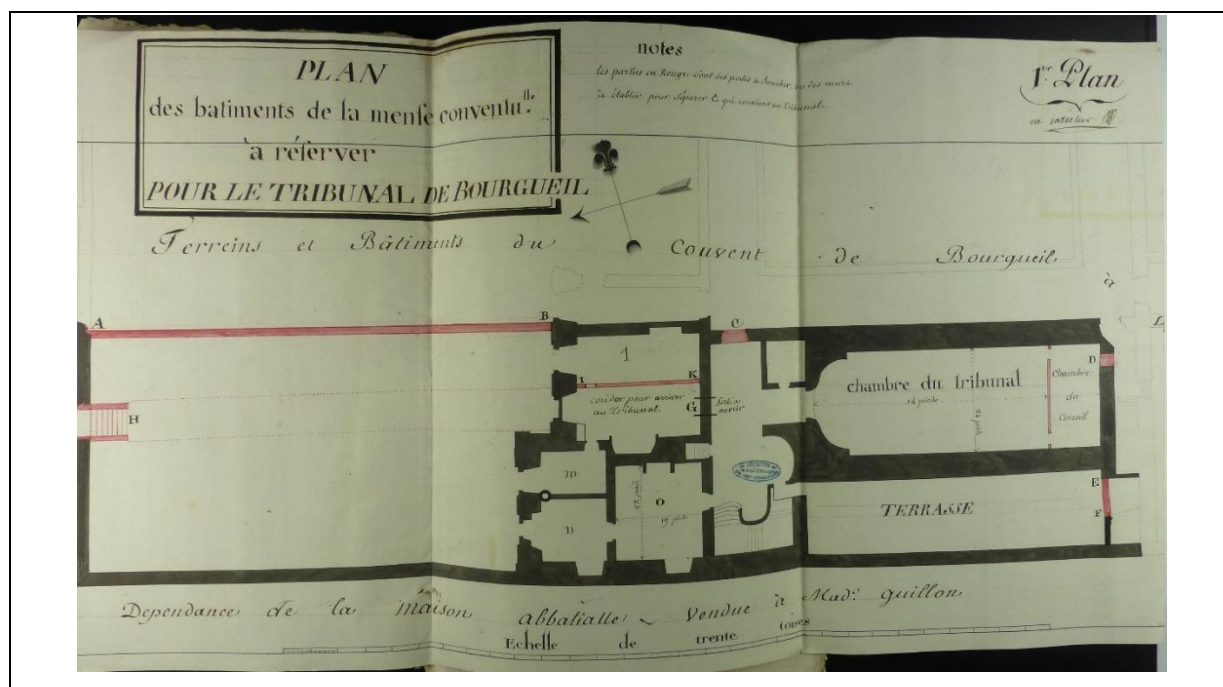 PLAN
des batiments de la mense conventu.lle
à réserver
POUR LE TRIBUNAL DE BOURGUEIL
notes
les parties en Rouge sont des portes à boucher ou des murs
à établir pour séparer ce qui convient au Tribunal.
1er Plan
Terreins et Bâtiments du Couvent de Bourgueil
à
L
A
B
C
D
1
I
K
coridor pour arriver
au Tribunal
G
porte à
ouvrir
H
chambre du tribunal
54 pieds
Chambre
du
Conseil
m
n
O
19 pieds
E
F
TERRASSE
Dependance de la maison abbatialle vendue à Mad.e guillon
Echelle de trente toises